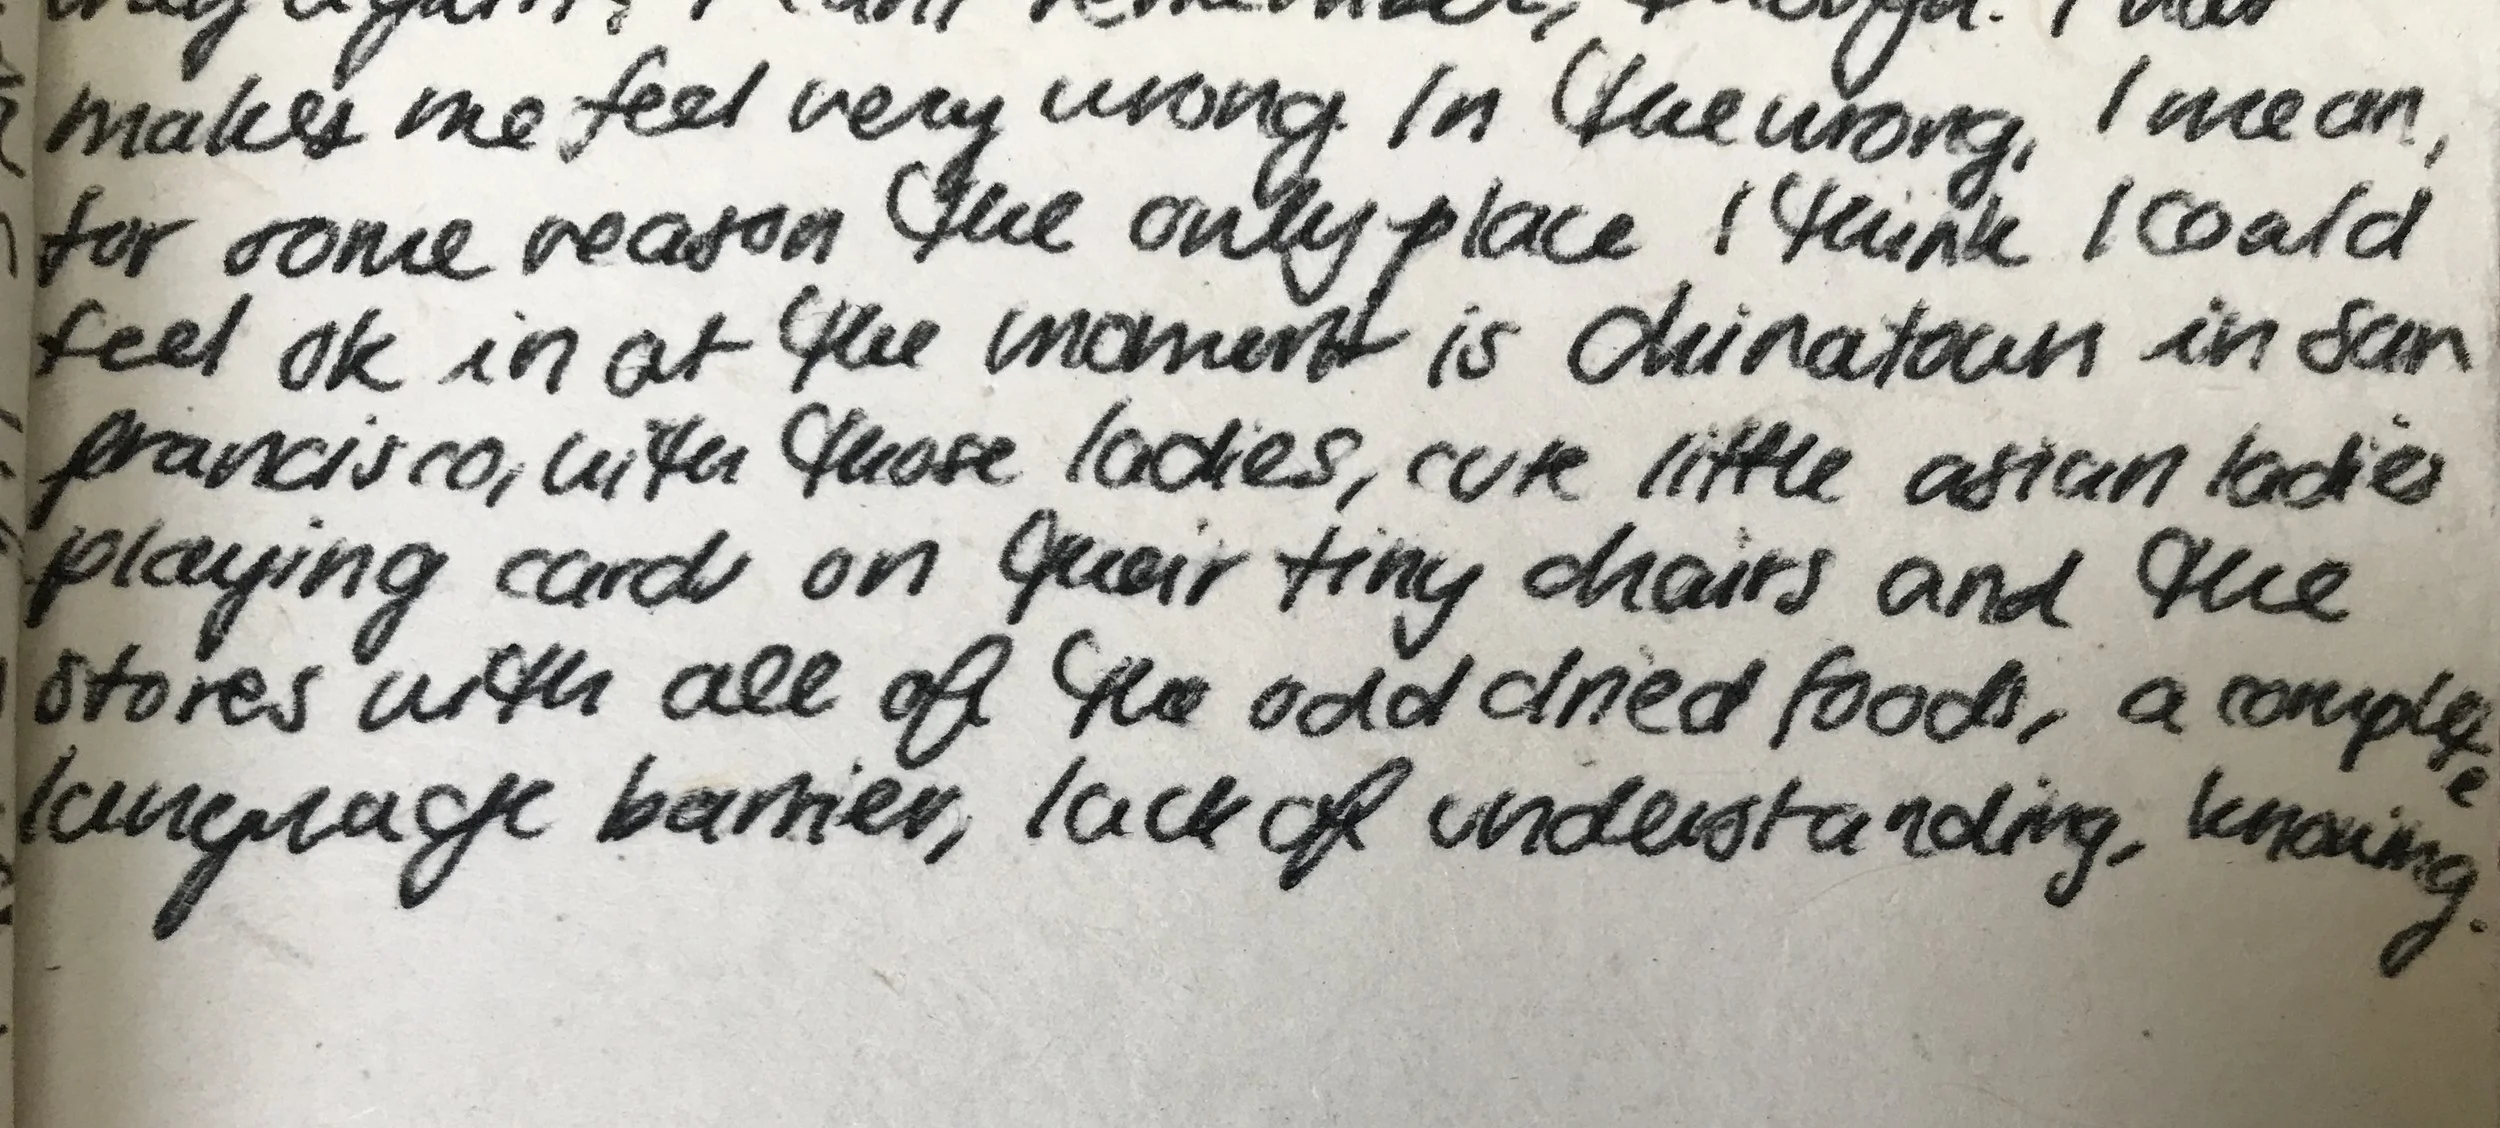 again, I can't remember, though. That
makes me feel very wrong. In the wrong, I mean,
for some reason the only place I think I could
feel ok in at the moment is chinatown in San
francisco, with those ladies, cute little asian ladies
playing cards on their tiny chairs and the
stores with all of the odd dried foods, a complete
language barrier, lack of understanding, knowing.